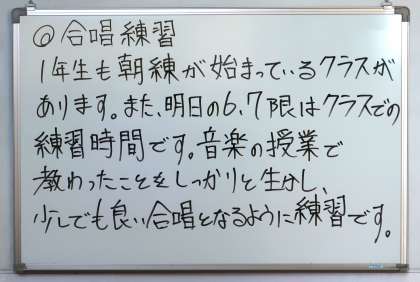 ◎合唱練習
1年生も朝練が始まっているクラスが
あります。また、明日の6、7限はクラスでの
練習時間です。音楽の授業で
教わったことをしっかりと生かし、
少しでも良い合唱となるように練習です。